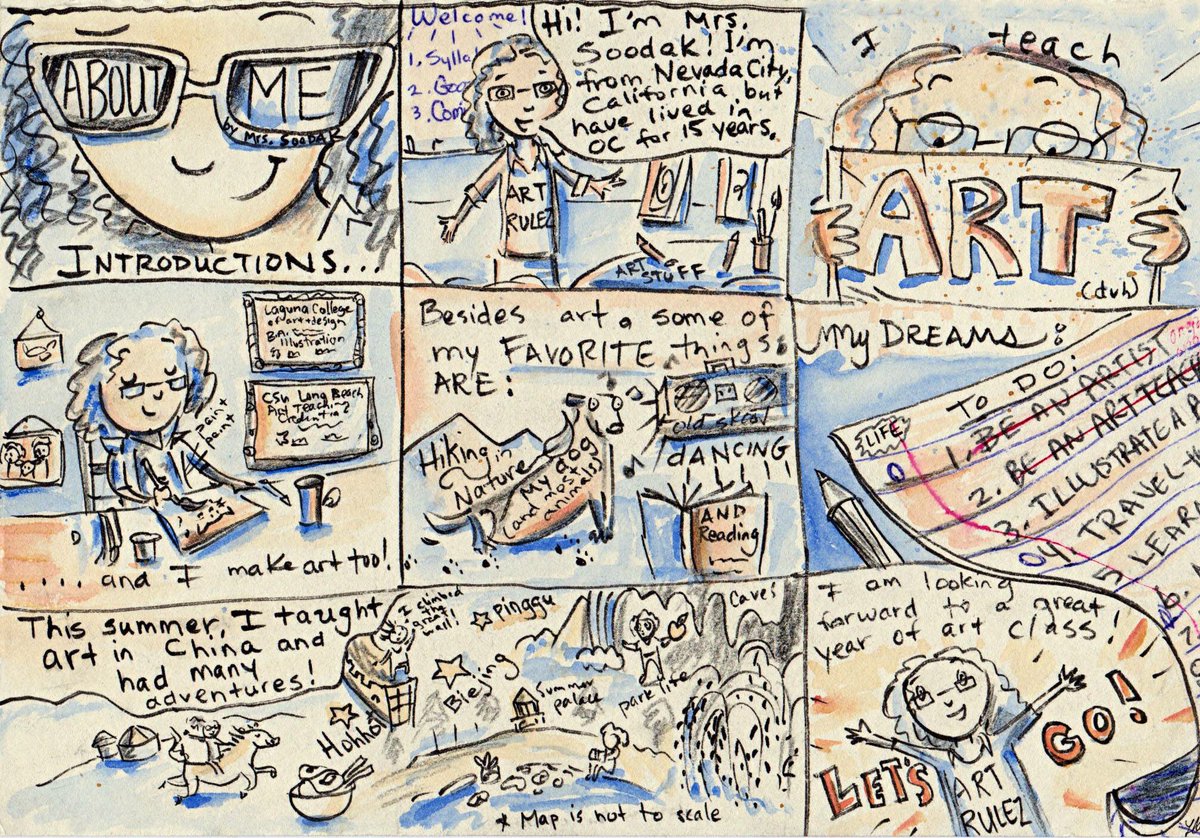 ABOUT ME
by Mrs. Soodak
INTRODUCTIONS...
Welcome!
1. Sylla
2. Goa
3. Com
Hi! I'm Mrs.
Soodak! I'm
from Nevada City,
California but
have lived in
OC for 15 years.
ART
RULEZ
ART STUFF
I teach
ART
(duh)
Laguna College
of art+design
BA in
illustration
CSU Long Beach
Art Teacher
Credential
paint
paint
.... and I make art too!
Besides art, some of
my FAVORITE things
ARE:
Hiking in
Nature
My dog
(and most
animals)
old skool
dANCING
AND
Reading
My DREAMS:
LIFE
TO DO:
1. BE AN ARTIST
2. BE AN ART TEAC
3. ILLUSTRATE A
4. TRAVEL
5. LEAR
6.
7.
This summer, I taught
art in China and
had many
adventures!
I climbed
the great
wall!
Pinggu
Biejing
Hohhot
Summer
palace
park life
Caves
* Map is not to scale
I am looking
forward to a great
year of art class!
LET'S GO!
ART
RULEZ